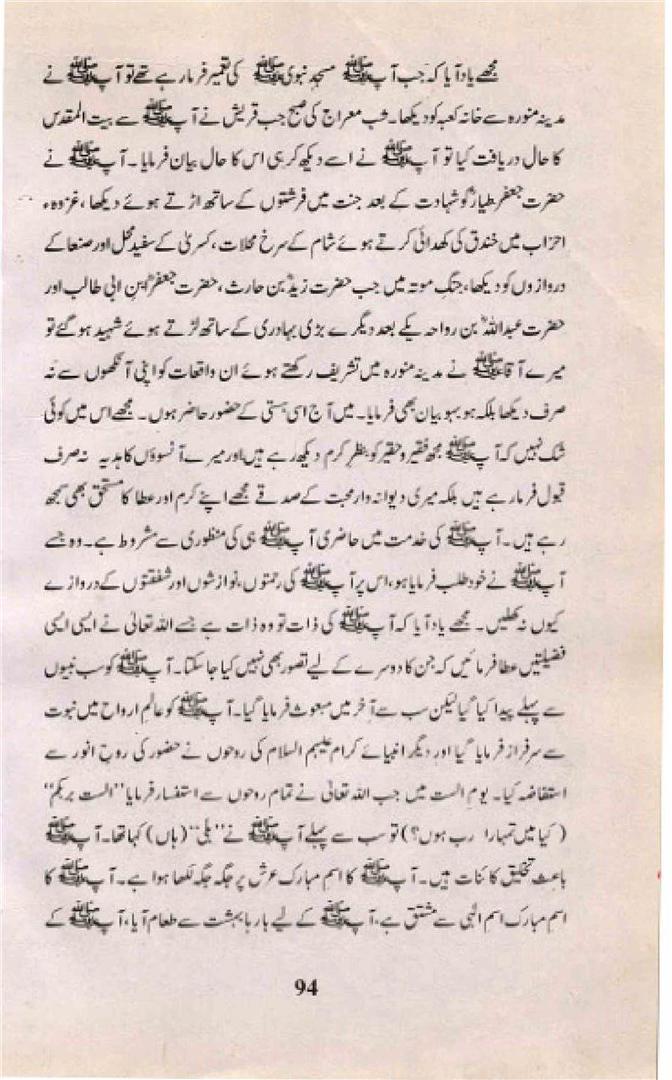 مجھے یاد آیا کہ جب آپ ﷺ مسجدِ نبوی ﷺ کی تعمیر فرما رہے تھے تو آپ ﷺ نے
مدینہ منورہ سے خانہ کعبہ کو دیکھا۔ شب معراج کی صبح جب قریش نے آپ ﷺ سے بیت المقدس
کا حال دریافت کیا تو آپ ﷺ نے اسے دیکھ کر ہی اس کا حال بیان فرمایا۔ آپ ﷺ نے
حضرت جعفر طیارؓ کو شہادت کے بعد جنت میں فرشتوں کے ساتھ اڑتے ہوئے دیکھا، غزوہء
احزاب میں خندق کی کھدائی کرتے ہوئے شام کے سرخ محلات، کسریٰ کے سفید محل اور صنعا کے
دروازوں کو دیکھا، جنگِ موتہ میں جب حضرت زیدؓ بن حارث، حضرت جعفرؓ ابنِ ابی طالب اور
حضرت عبداللہؓ بن رواحہ یکے بعد دیگرے بڑی بہادری کے ساتھ لڑتے ہوئے شہید ہو گئے تو
میرے آقا ﷺ نے مدینہ منورہ میں تشریف رکھتے ہوئے ان واقعات کو اپنی آنکھوں سے نہ
صرف دیکھا بلکہ ہو بہو بیان بھی فرمایا۔ میں آج اسی ہستی کے حضور حاضر ہوں۔ مجھے اس میں کوئی
شک نہیں کہ آپ ﷺ مجھ فقیر و حقیر کو بنظرِ کرم دیکھ رہے ہیں اور میرے آنسوؤں کا ہدیہ نہ صرف
قبول فرما رہے ہیں بلکہ میری دیوانہ وار محبت کے صدقے مجھے اپنے کرم اور عطا کا مستحق بھی سمجھ
رہے ہیں۔ آپ ﷺ کی خدمت میں حاضری آپ ﷺ ہی کی منظوری سے مشروط ہے۔ وہ جسے
آپ ﷺ نے خود طلب فرمایا ہو، اس پر آپ ﷺ کی رحمتوں، نوازشوں اور شفقتوں کے دروازے
کیوں نہ کھلیں۔ مجھے یاد آیا کہ آپ ﷺ کی ذات تو وہ ذات ہے جسے اللہ تعالیٰ نے ایسی ایسی
فضیلتیں عطا فرمائیں کہ جن کا دوسرے کے لیے تصور بھی نہیں کیا جا سکتا۔ آپ ﷺ کو سب نبیوں
سے پہلے پیدا کیا گیا لیکن سب سے آخر میں مبعوث فرمایا گیا۔ آپ ﷺ کو عالمِ ارواح میں نبوت
سے سرفراز فرمایا گیا اور دیگر انبیائے کرام علیہم السلام کی روحوں نے حضور کی روحِ انور سے
استفاضہ کیا۔ یومِ الست میں جب اللہ تعالیٰ نے تمام روحوں سے استفسار فرمایا ”الست بربکم“
(کیا میں تمہارا رب ہوں؟) تو سب سے پہلے آپ ﷺ نے ”بلیٰ“ (ہاں) کہا تھا۔ آپ ﷺ
باعثِ تخلیق کائنات ہیں۔ آپ ﷺ کا اسم مبارک عرش پر جگہ جگہ لکھا ہوا ہے۔ آپ ﷺ کا
اسم مبارک اسم الٰہی سے مشتق ہے، آپ ﷺ کے لیے بارہا بہشت سے طعام آیا، آپ ﷺ کے
94